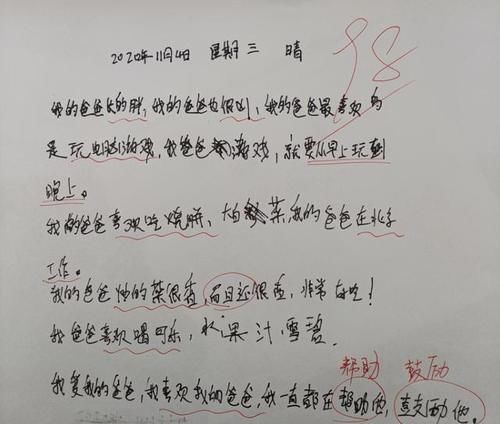 2020年11月4日 星期三 晴
98
我的爸爸长的胖，我的爸爸也很凶，我的爸爸最喜欢的
是玩电脑游戏，我爸爸游戏，就要从早上玩到
晚上。
我的爸爸喜欢吃烧饼，大白菜，我的爸爸在北京
工作。
我的爸爸炒的菜很香，而且还很香，非常好吃！
我爸爸喜欢喝可乐，水果汁，雪碧.
帮助 鼓励
我爱我的爸爸，我喜欢我的爸爸，我一直都在帮助他，鼓励他。